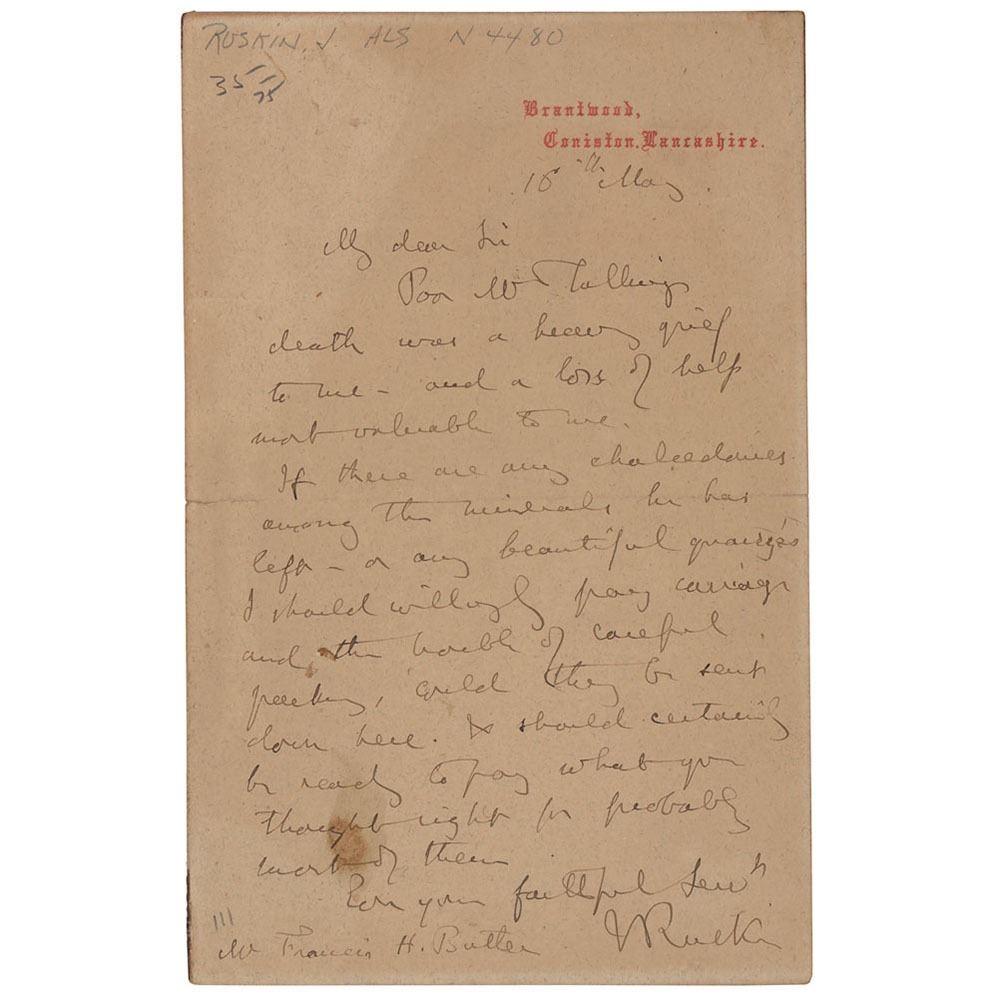 RUSKIN, J ALS N 4480
35 75
Brantwood,
Coniston, Lancashire.
16th May.
My dear Sir
Poor Mr Tallings
death was a heavy grief
to me - and a loss of help
most valuable to me.
If there are any chalcedonies
among the minerals he has
left - or any beautiful
I should willingly pay carriage
and the trouble of careful
packing, could they be sent
down here. I should certainly
be ready to pay what you
thought right for probably
most of them
Ever your faithful Servt
J Ruskin
111
Mr Francis H. Butler